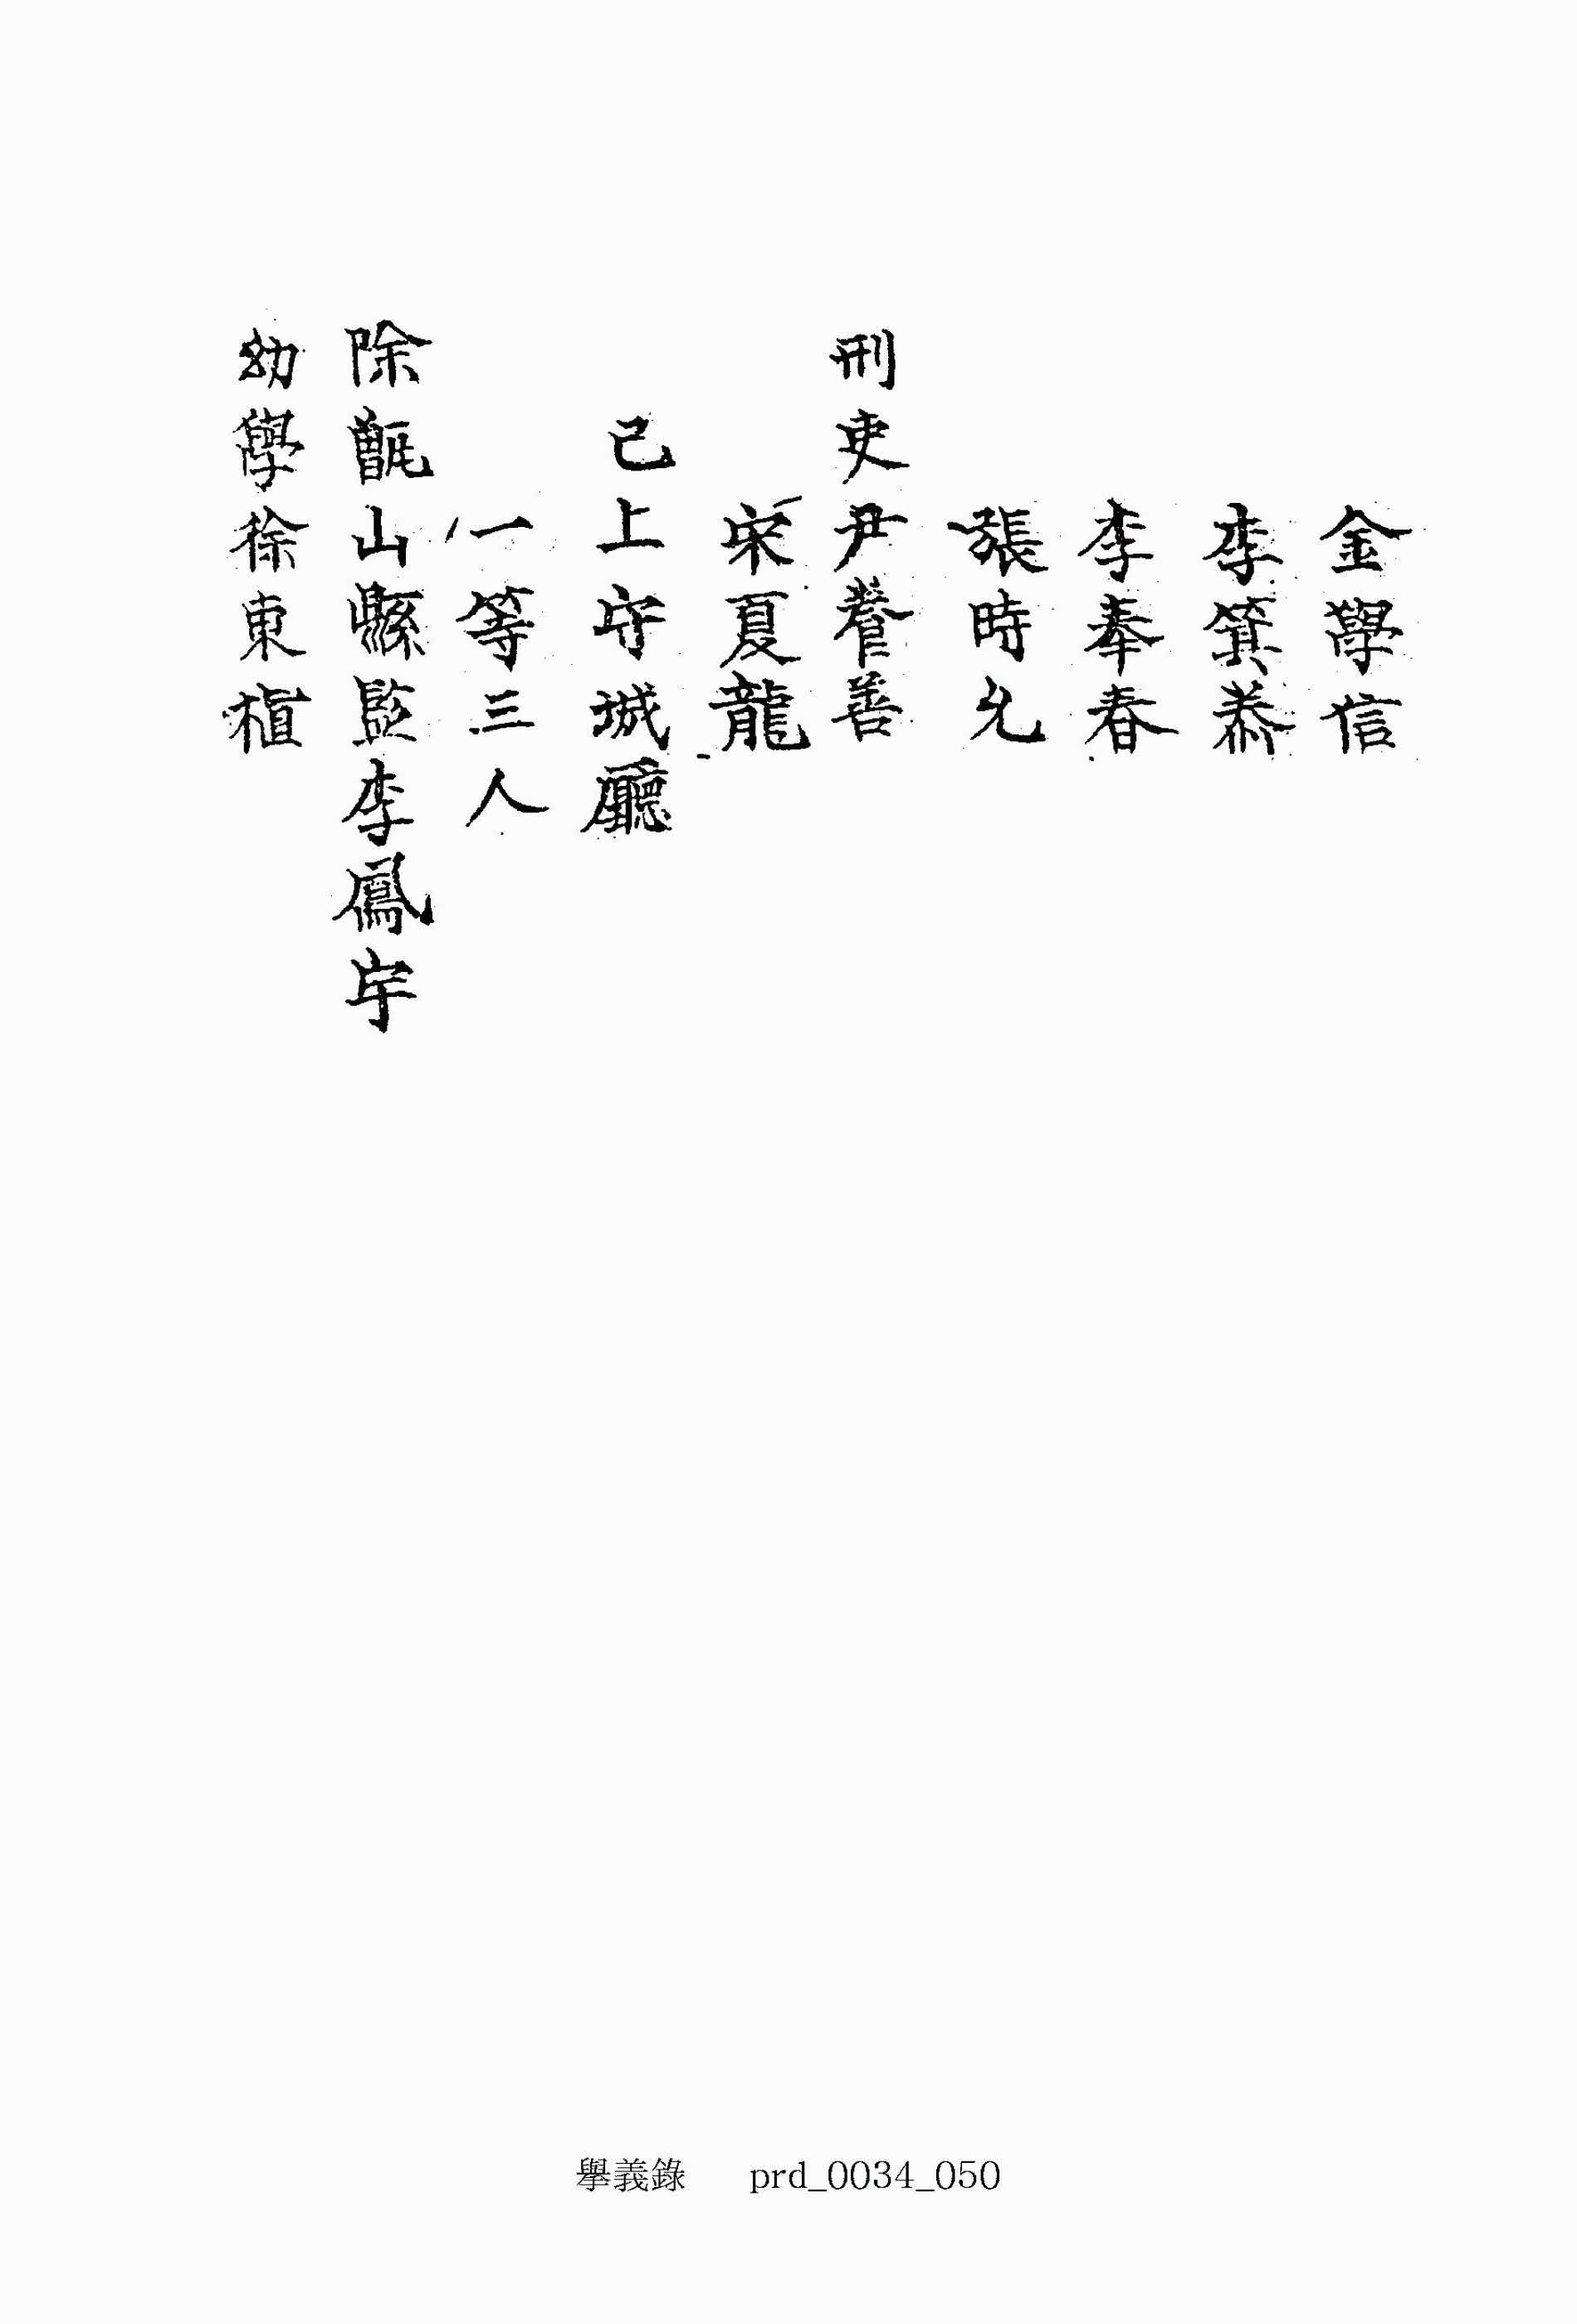 金學信
李箕泰
李奉春
張時允
刑吏尹養善
宋夏龍
已上守城廳
一等三人
除甑山縣監李鳳宇
幼學徐東稙
擧義錄 prd_0034_050